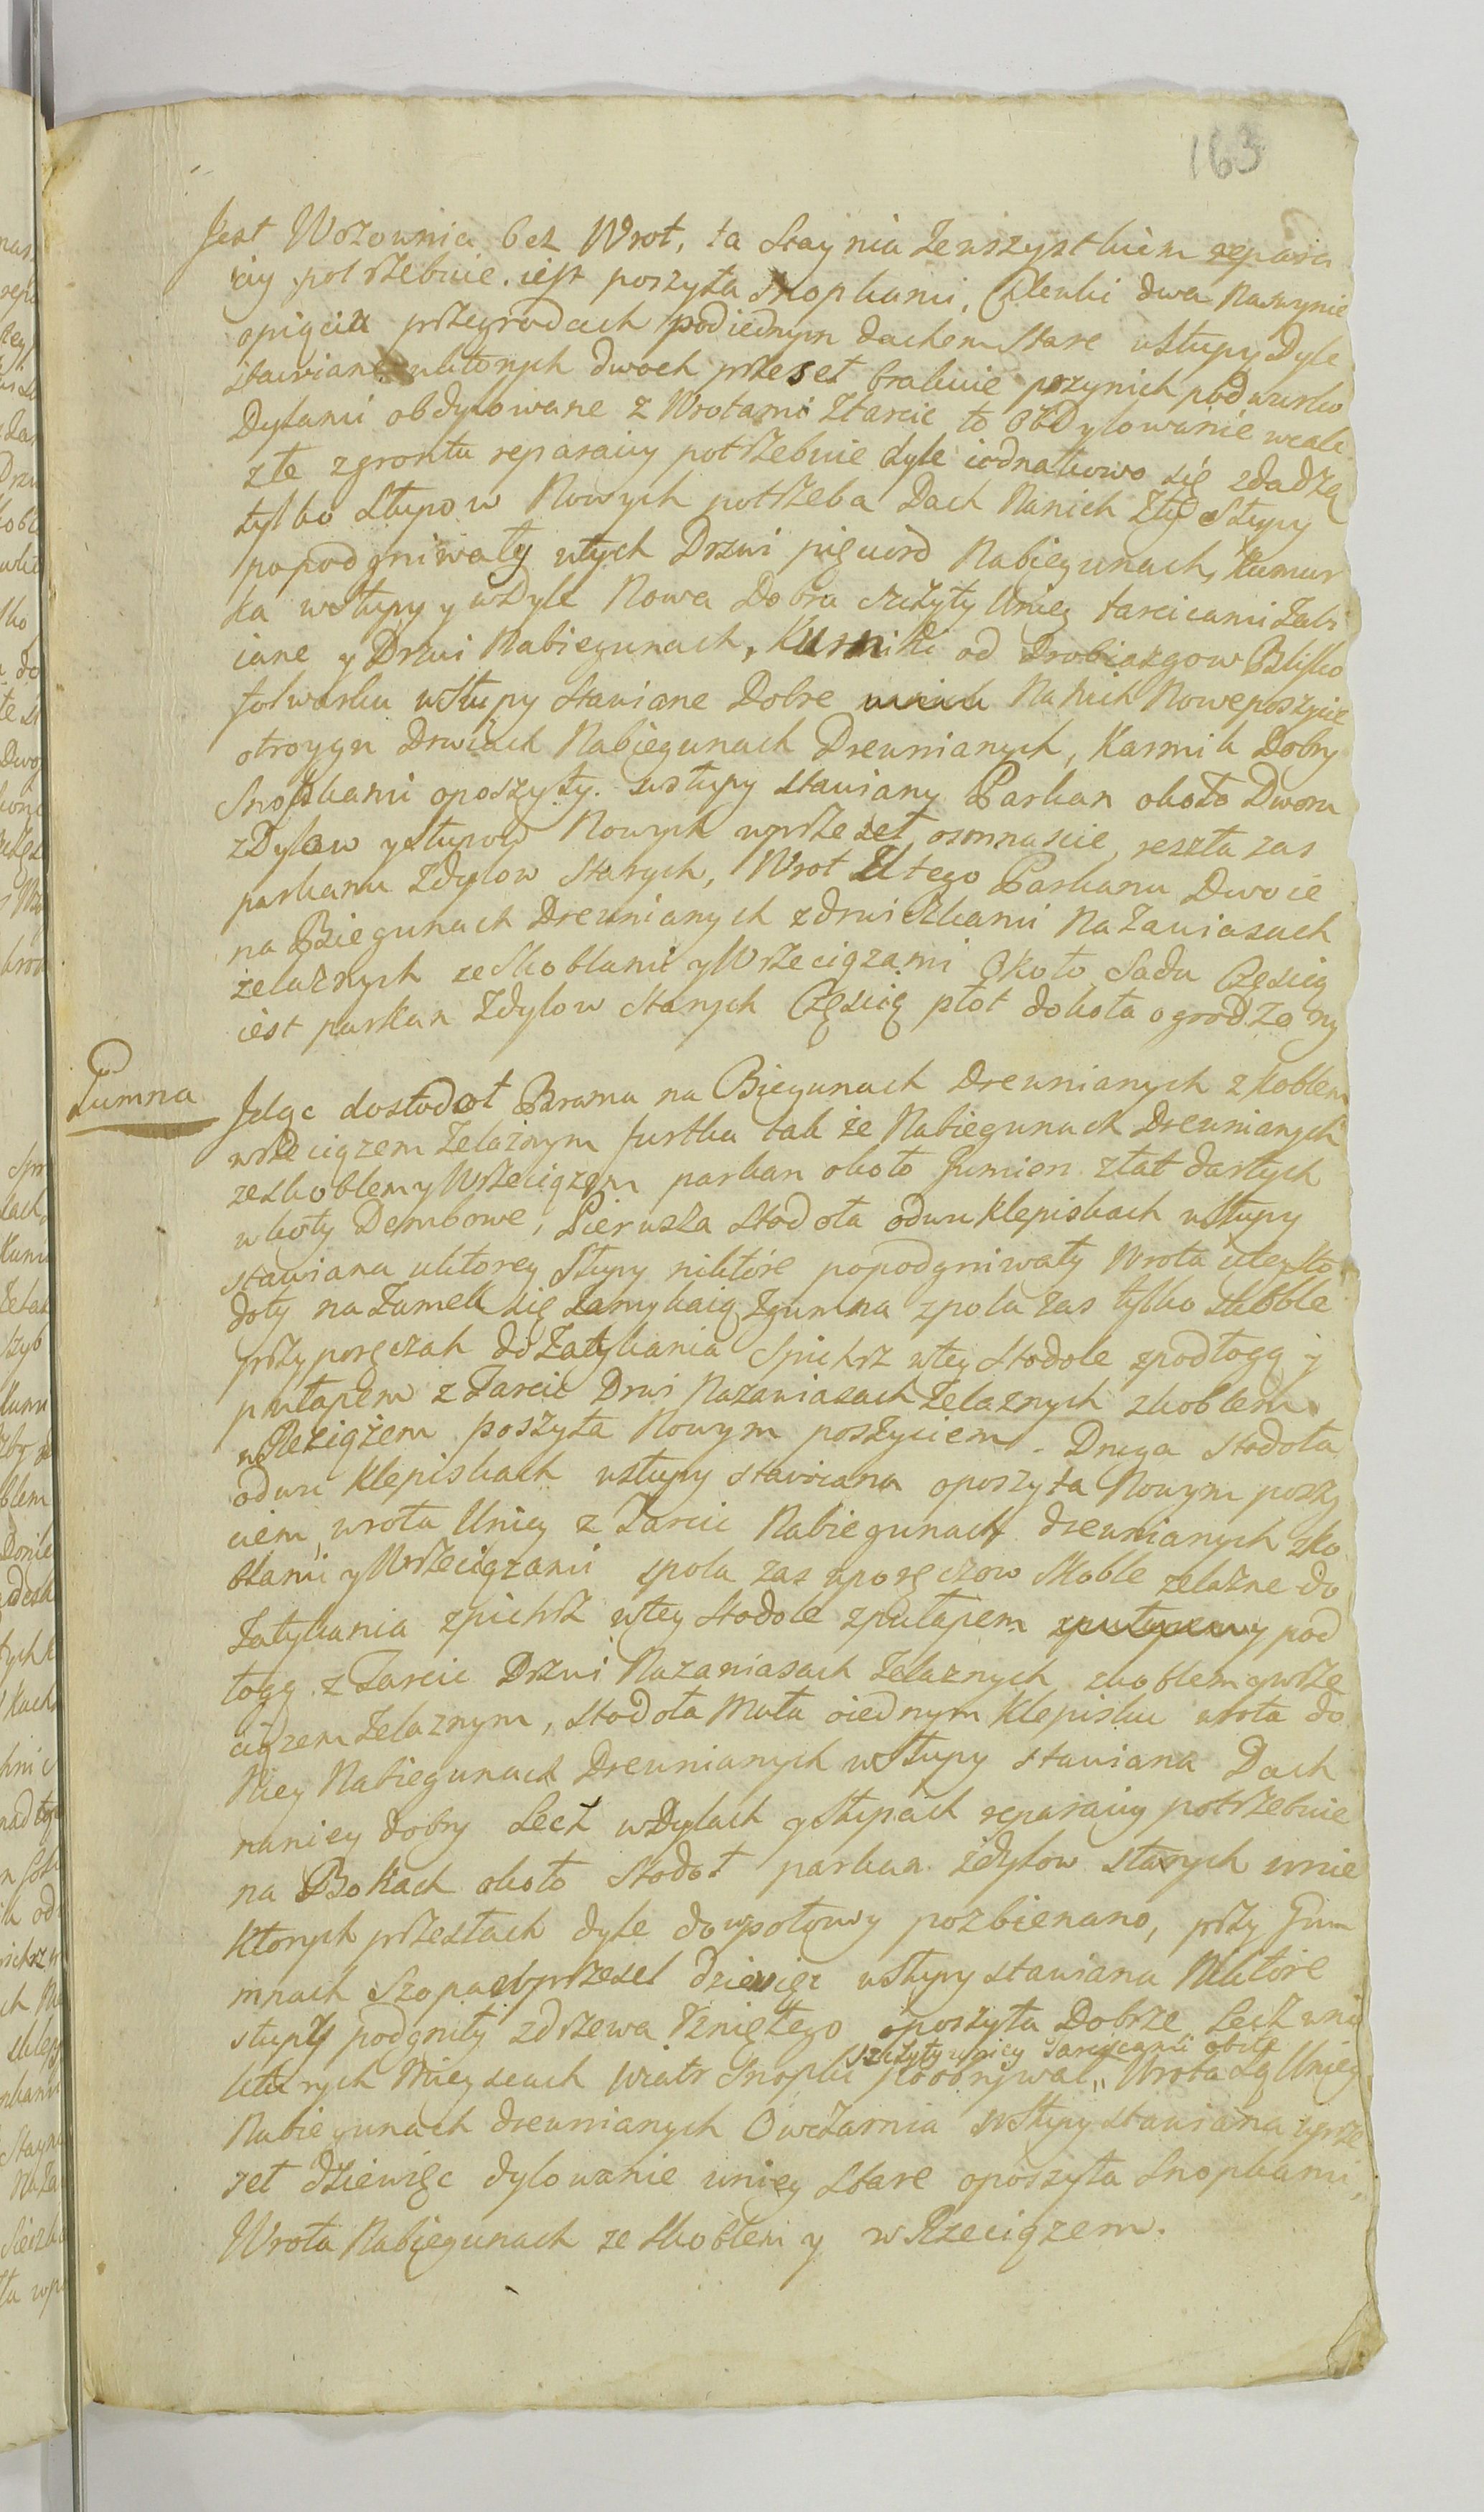 163
Jest Wozownia bez Wrot, ta Staynia ze wszystkiem repara
cyy potrzebuie. iest poszyta Snopkami, Chlewki dwa Naswynie
opięciu przegrodach pod iednym dachem Stare wStupy Dyle
stawiane uktorych dwoch przeset brakuie przynich podworko
Dylami obdylowane z Wrotami ztarcic to obdylowanie wcale
złe zgrontu reparacyy potrzebuie dyle iednakowo się zdadzą
tylko Słupow Nowych potrzeba Dach Nanich Zły Słupy
popodgniwały utych Drzwi pięcioro Nabiegunach, Kumur
ka wStupy y wDyle Nowa Dobra szczyty Uniey tarcicami Zabi
iane y Drzwi Nabiegunach, Kurniki od Drobiazgow Blisko
folwarku wStupy stawiane Dobre Nanich Nowe poszycie
otroygu Drwiach Nabiegunach Drewnianych, Karmik Dobry
Snopkami oposzyty. wstupy stawiany Parkan około Dworu
zDylow ySłupow Nowych wprzeset osmnascie, reszta zas
parkanu zdylow Starych, Wrot Utego Parkanu Dwoie
na Biegunach Drewnianych zdrwiczkami Na Zawiasach
żelaznych ze Skoblami y Wrzeciązami Około Sadu Częscią
iest parkan zdylow Starych Częscią płot dokoła ogrodzony
Gumna
Idąc dostodoł Brama na Biegunach Drewnianych zkoblem
wrzeciązem Żelaznym furtka tak że Nabiegunach Drewnianych
zeskoblem y Wrzeciązem parkan około Gumien złat dartych
w koły Dembowe, Pierwsza Stodoła odwu klepiskach wStupy
stawiana uktorey Słupy niktóre popodgniwały Wrota uteySto
doły na Zamek się Zamykaią Zgumna zpola zas tylko skoble
przy poręczah do Zatykania Spichrz wtey Stodole zpodłogą y
pułapem z Tarcic Drwi Nazawiasach Żelaznych zkoblem
wRzeciążem poszyta Nowym poszyciem. Druga Stodoła
odwu Klepiskach wstupy stawiana oposzyta Nowym poszy
ciem, wrota Uniey z Tarcic Nabiegunach drewnianych zko
blami y Wrzeciązami zpola zas uporęczow Skoble zelazne do
Zatykania zpichrz wtey Stodole zpułapem zpułapem y pod
łogą z Tarcic Drzwi Nazawiasach Żelaznych zkoblem ywrze
ciązem Żelaznym, Stodoła Mała oiednym Klepisku wrota do
Niey Nabiegunach Drewnianych wStupy stawiana Dach
naniey dobry Lecz wDylach ySłupach reparacyy potrzebuie
na Bokach około Stodoł parkan zdylow starych wnie
Ktorych przestach dyle dowpołowy pozbierano, przy Gum
mnach Szopa wprzeset dziewięc wStupy stawiana Niktóre
słupy podgniły zdrzewa Rzniętego oposzyta Dobrze Lecz wnie
szczyty uniey Tarcicami obite
kturych Mieyscach Wiatr Snopki poobrywał" Wrota są Uniey
Nabiegunach drewnianych Owczarnia wStupy stawiana wprze
set dziewięc dylowanie uniey Stare oposzyta Snopkami,
Wrota Nabiegunach ze Skoblem y wRzeciązem.